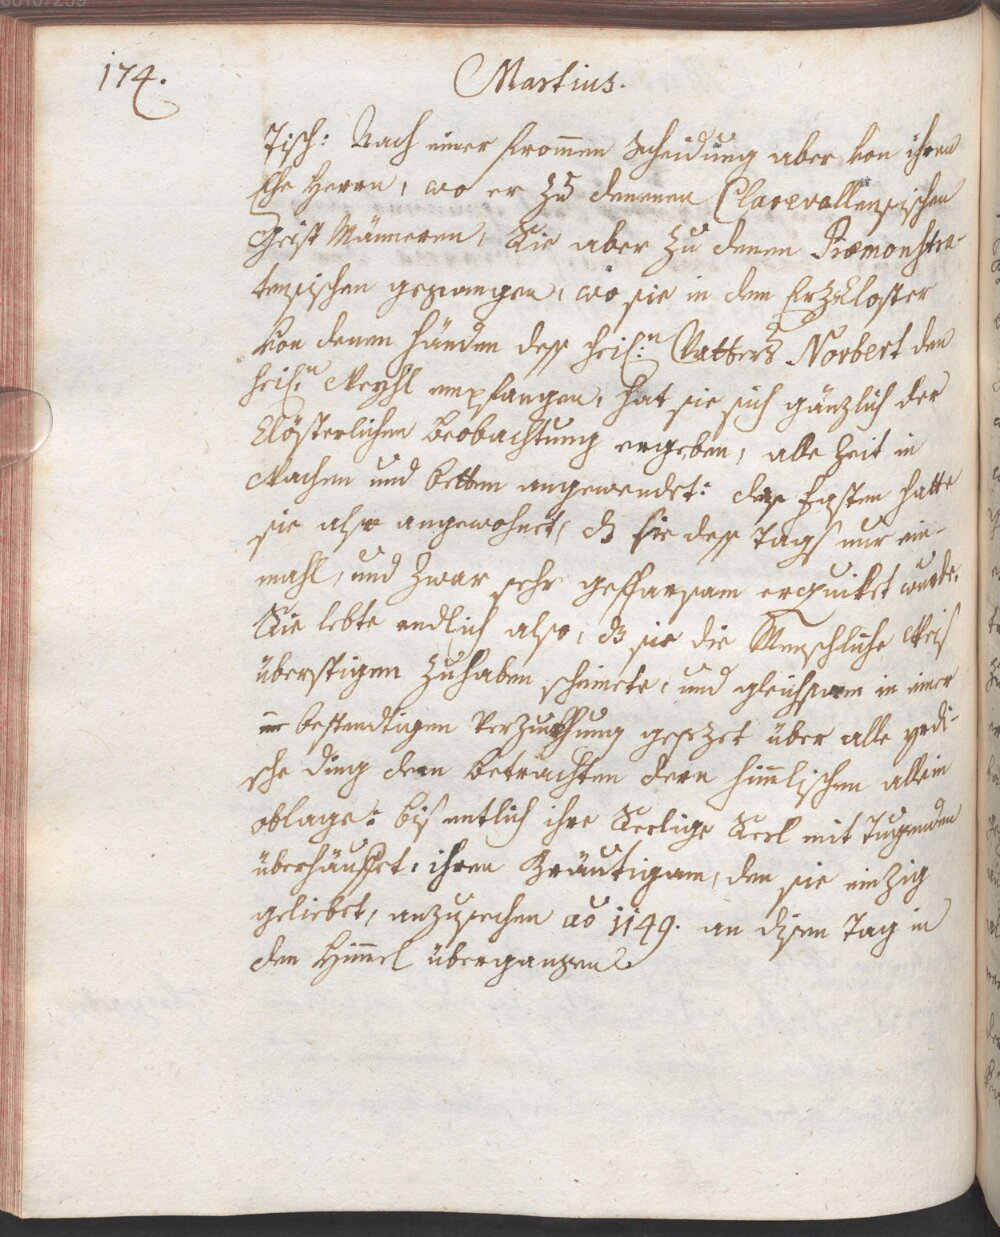 174.
Martius.
Tisch: Nach einer frommen Scheidung aber von ihren
Ehe Herrn, wo er zu denenen Clarevallensischen
Geist Männeren, Sie aber zu denen Præmonstra-
tensischen gegangen, wo sie in dem ErzCloster
von denen Händen dess heil:n Vatters Norbert den
heil:n Weyhl empfangen, hat sie sich gänzlich der
Clösterlichen beobachtung ergeben, alle Zeit in
Wachen und betten angewendet: das fasten hatte
sie also angewohnet, dz sie dess Tags nur ein-
mahl, und zwar sehr gesparsam erquiket wurde.
Sie lebte endlich also, dz sie die Menschliche Weis
überstigen zuhaben scheinete, und gleichsam in einer
beständigen verzuckhung gesezet über alle yrdi-
sche ding dem betrachten deren himlischen allein
oblage: bis entlich ihre Seelige Seel mit Tugenden
überhäuffet, ihren Bräutigam, den sie einzig
geliebet, anzusechen ao 1149. an disem Tag in
den Himmel übergangen.